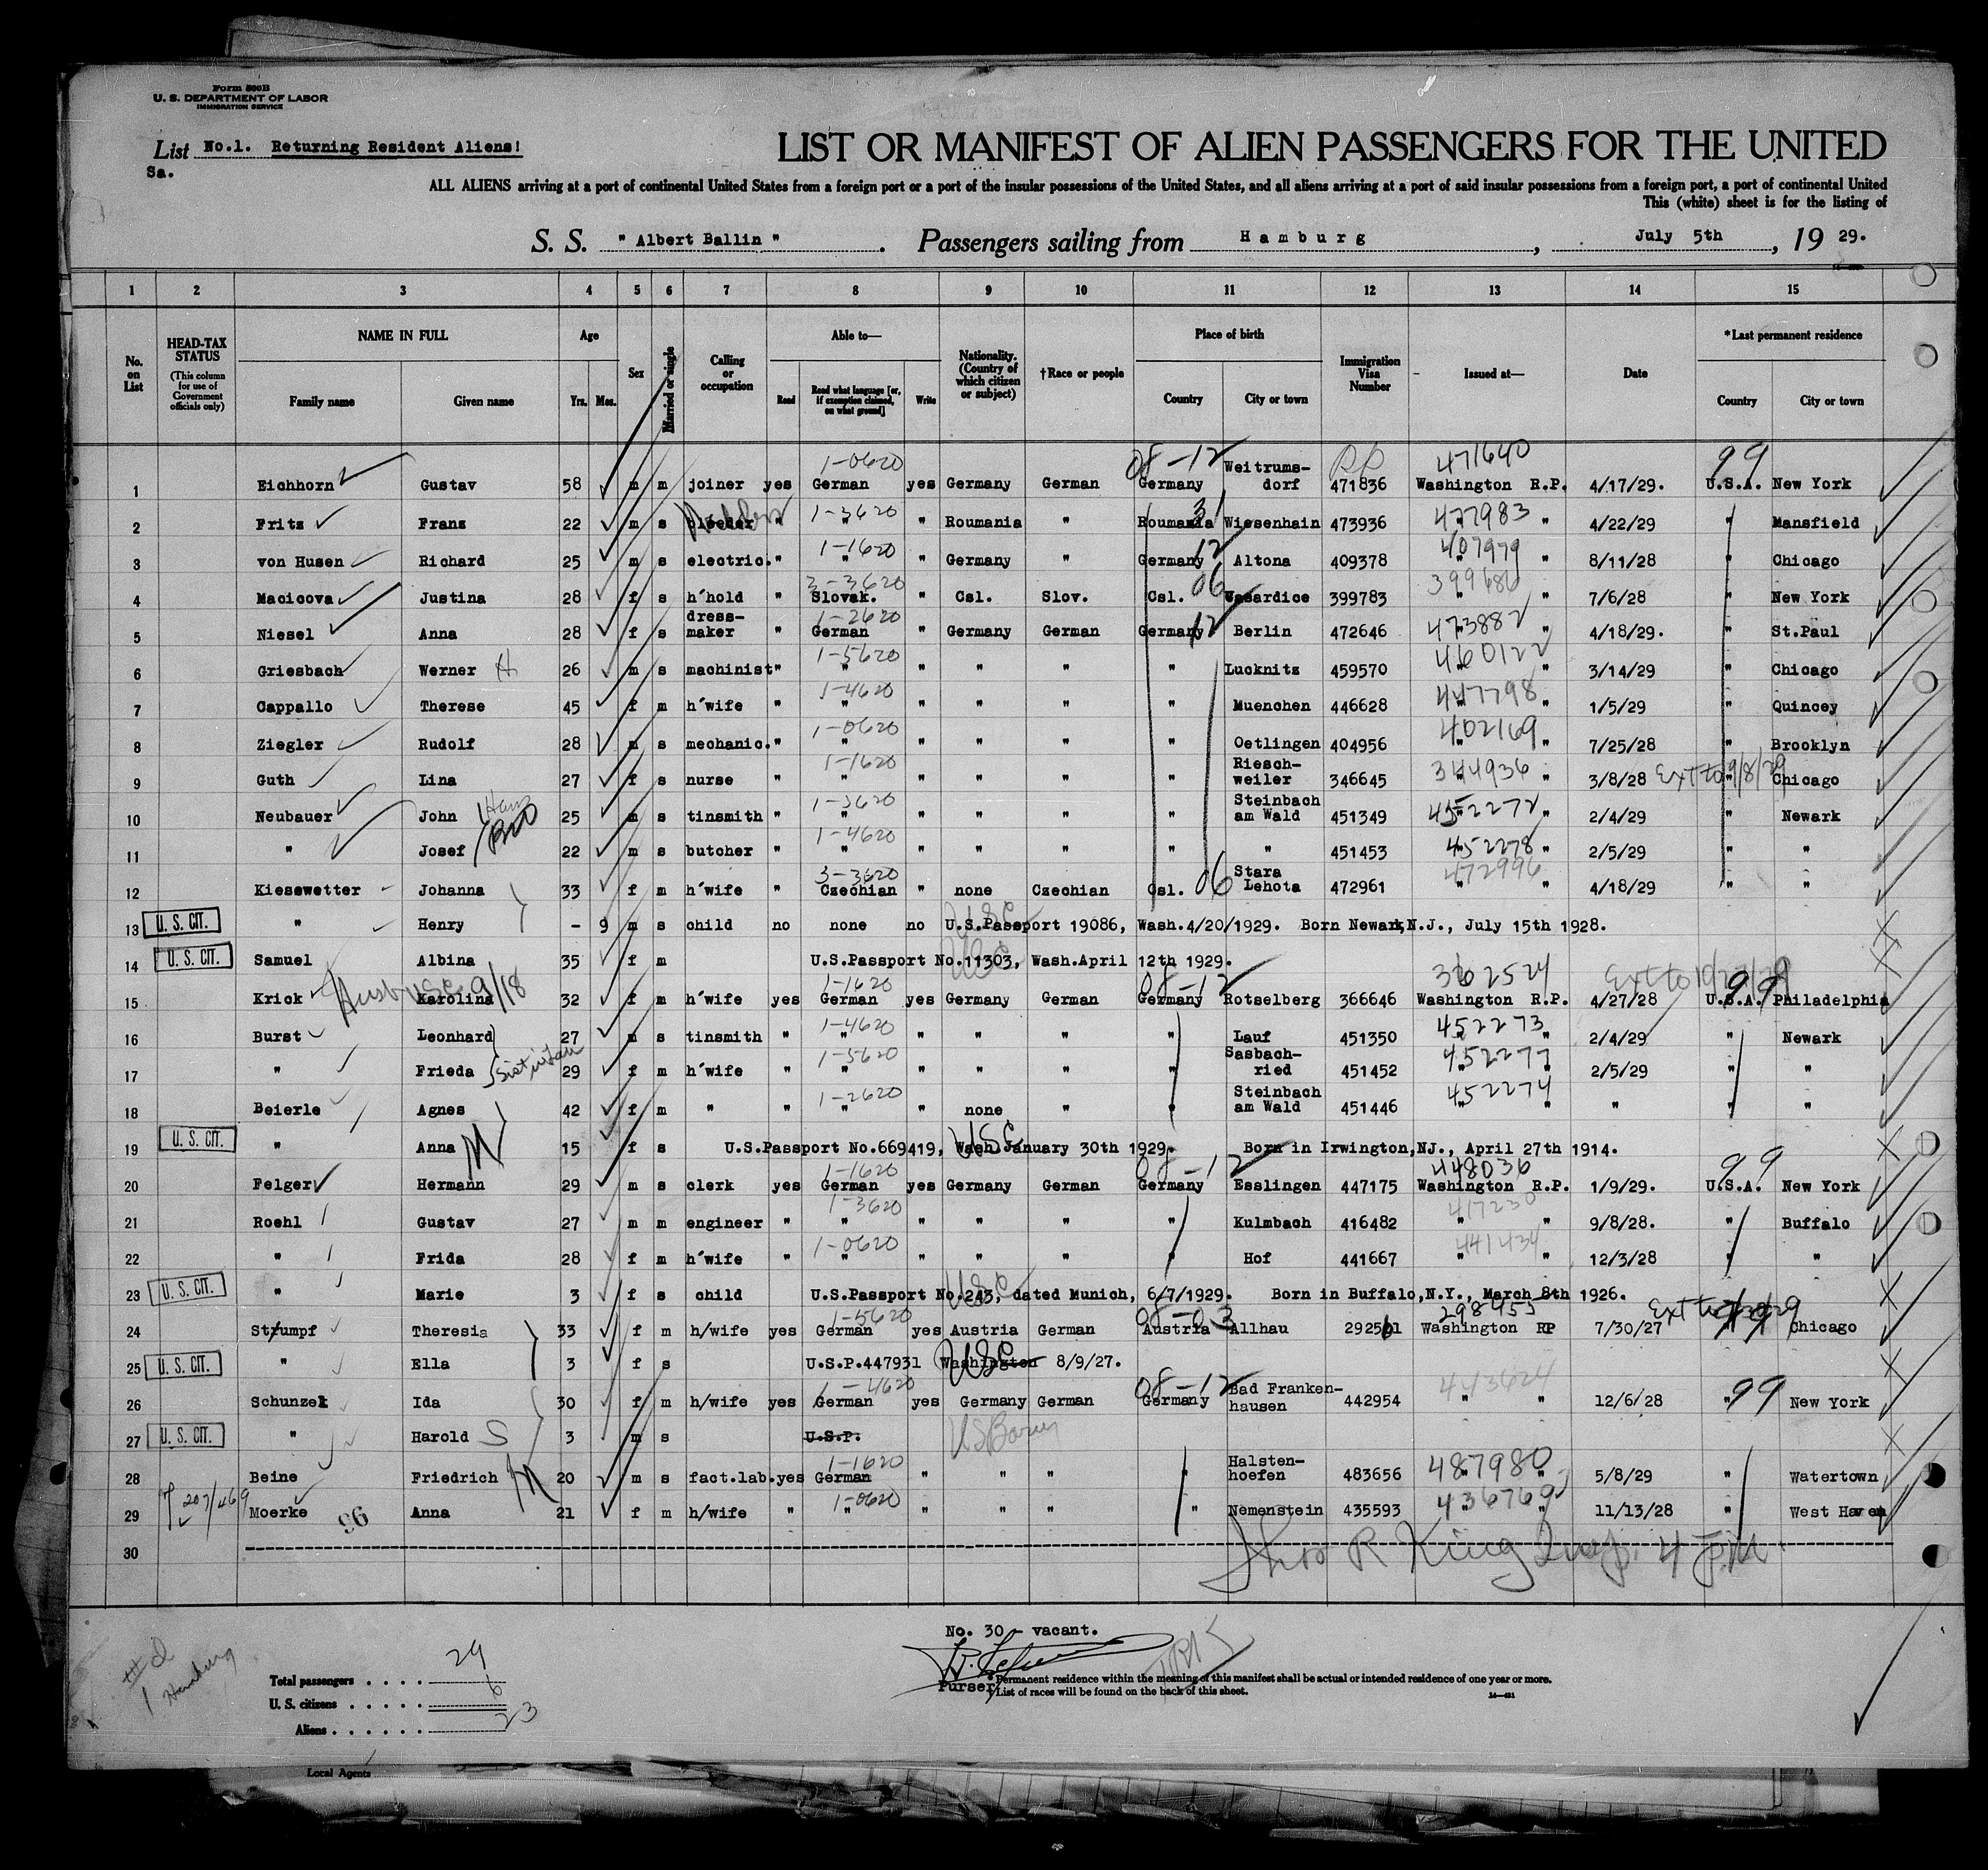 Form 500B
U. S. DEPARTMENT OF LABOR
IMMIGRATION SERVICE
List No.1. Returning Resident Aliens!
Sa.
LIST OR MANIFEST OF ALIEN PASSENGERS FOR THE UNITED
ALL ALIENS arriving at a port of continental United States from a foreign port or a port of the insular possessions of the United States, and all aliens arriving at a port of said insular possessions from a foreign port, a port of continental United
This (white) sheet is for the listing of
S. S. " Albert Ballin " . Passengers sailing from Hamburg , July 5th , 19 29.
1 2 3 4 5 6 7 8 9 10 11 12 13 14 15
No. on List HEAD-TAX STATUS (This column for use of Government officials only) NAME IN FULL Family name Given name Age Yrs. Mos. Sex Married or single Calling or occupation Able to— Read Read what language [or, if exemption claimed, on what ground] Write Nationality. (Country of which citizen or subject) †Race or people Place of birth Country City or town Immigration Visa Number Issued at— Date *Last permanent residence Country City or town
1-0620 08-12 Weitrums- RP 471640 99
1 Eichhorn Gustav 58 m m joiner yes German yes Germany German Germany dorf 471836 Washington R.P. 4/17/29. U.S.A. New York
1-3620 31 477983
2 Fritz Franz 22 m s " " " Roumania " Roumania Wiesenhain 473936 " " 4/22/29 " Mansfield
1-1620 12 407979
3 von Husen Richard 25 m s electric. " " " Germany " Germany Altona 409378 " " 8/11/28 " Chicago
3-3620 06 399686
4 Macicova Justina 28 f s h'hold " Slovak. " Csl. Slov. Csl. 399783 " " 7/6/28 " New York
dress- 1-2620 12 473882
5 Niesel Anna 28 f s maker " German " Germany German Germany Berlin 472646 " 4/18/29. " St.Paul
1-5620 460122
6 Griesbach Werner H 26 m s machinist " " " " " " Lucknitz 459570 " " 3/14/29 " Chicago
1-4620 447798
7 Cappallo Therese 45 f m h'wife " " " " " " Muenchen 446628 " " 1/5/29 " Quincey
1-0620 402169
8 Ziegler Rudolf 28 m s mechanic. " " " " " " Oetlingen 404956 " " 7/25/28 " Brooklyn
1-1620 Riesch- 344936 Ext to 9/8/29
9 Guth Lina 27 f s nurse " " " " " " weiler 346645 " " 3/8/28 " Chicago
1-3620 Steinbach 452272
10 Neubauer John 25 m s tinsmith " " " " " " am Wald 451349 " " 2/4/29 " Newark
Bro 1-4620 452278
11 " Josef 22 m s butcher " " " " " " " 451453 " " 2/5/29 " "
3-3620 06 Stara 472996
12 Kiesewetter Johanna 33 f m h'wife " Czechian " none Czechian Csl. Lehota 472961 " " 4/18/29 " "
USC
13 U. S. CIT. " Henry - 9 m s child no none no U.S.Passport 19086, Wash.4/20/1929. Born Newark,N.J., July 15th 1928.
USC
14 U. S. CIT. Samuel Albina 35 f m U.S.Passport No.11303, Wash.April 12th 1929.
Husb USC 9/18 1-1620 08-12 362524 Ext to 10/27/29 99
15 Krick Karolina 32 f m h'wife yes German yes Germany German Germany Rotselberg 366646 Washington R.P. 4/27/28 U.S.A. Philadelphia
1-4620 452273
16 Burst Leonhard 27 m s tinsmith " " " " " " Lauf 451350 " " 2/4/29 " Newark
Sist in law 1-5620 Sasbach- 452277
17 " Frieda 29 f m h'wife " " " " " " ried 451452 " " 2/5/29 " "
1-2620 Steinbach 452274
18 Beierle Agnes 42 f m " " " " none " " am Wald 451446 " " " " "
USC
19 U. S. CIT. " Anna 15 f s U.S.Passport No.669419, Wash.January 30th 1929. Born in Irwington,NJ., April 27th 1914.
1-1620 08-12 448036 99
20 Felger Hermann 29 m s clerk yes German yes Germany German Germany Esslingen 447175 Washington R.P. 1/9/29. U.S.A. New York
1-3620 417230
21 Roehl Gustav 27 m m engineer " " " " " " Kulmbach 416482 " " 9/8/28. " Buffalo
1-0620 441434
22 " Frida 28 f m h'wife " " " " " " Hof 441667 " " 12/3/28 " "
USC
23 U. S. CIT. " Marie 3 f s child U.S.Passport No.243, dated Munich, 6/7/1929. Born in Buffalo,N.Y., March 8th 1926.
1-5620 08-03 298455 99
24 Strumpf Theresia 33 f m h/wife yes German yes Austria German Austria Allhau 292561 Washington RP 7/30/27 Chicago
USC
25 U. S. CIT. " Ella 3 f s U.S.P.447931 Washington 8/9/27.
1-4620 08-12 Bad Franken- 443624 99
26 Schunzel Ida 30 f m h/wife yes German yes Germany German Germany hausen 442954 " " 12/6/28 " New York
US Born
27 U. S. CIT. " Harold S 3 m s U.S.P.
1-1620 Halsten- 487980
28 Beine Friedrich 20 m s fact.lab. yes German " " " " hoefen 483656 " " 5/8/29 " Watertown
1-0620 436769
29 Moerke 96 Anna 21 f m h/wife " " " " " " Nemenstein 435593 " " 11/13/28 " West Haven
30
No. 30 - vacant.
Total passengers . . . . 29
U. S. citizens . . . . . 6
Aliens . . . . . . 23
Purser.
Permanent residence within the meaning of this manifest shall be actual or intended residence of one year or more.
List of races will be found on the back of this sheet.
Local Agents